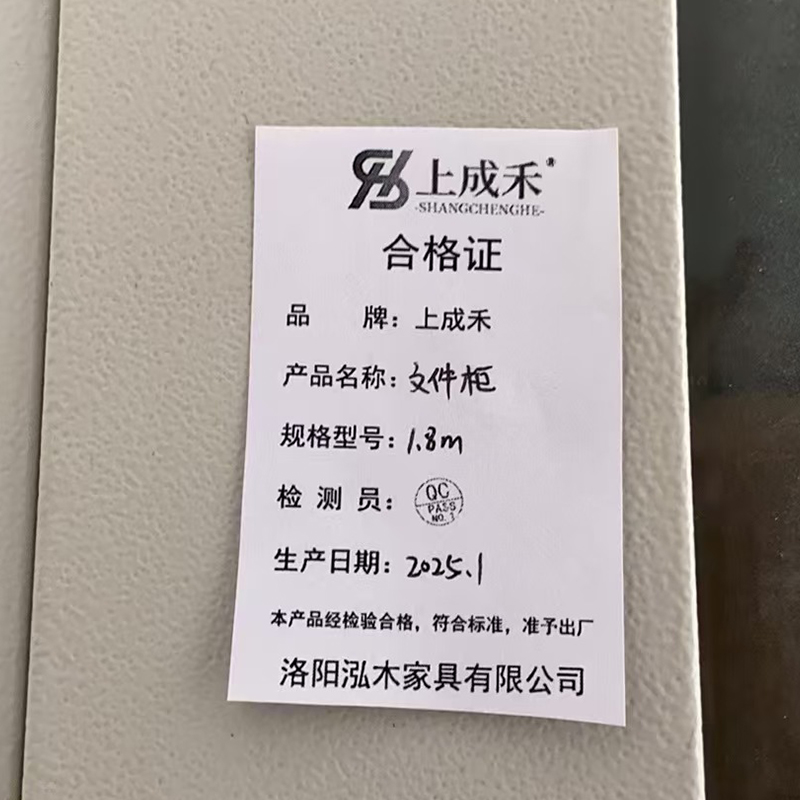 上成禾®
-SHANGCHENGHE-
合格证
品 牌：上成禾
产品名称：文件柜
规格型号：1.8m
检 测 员：QC
PASS
NO.1
生产日期：2025.1
本产品经检验合格，符合标准，准予出厂
洛阳泓木家具有限公司